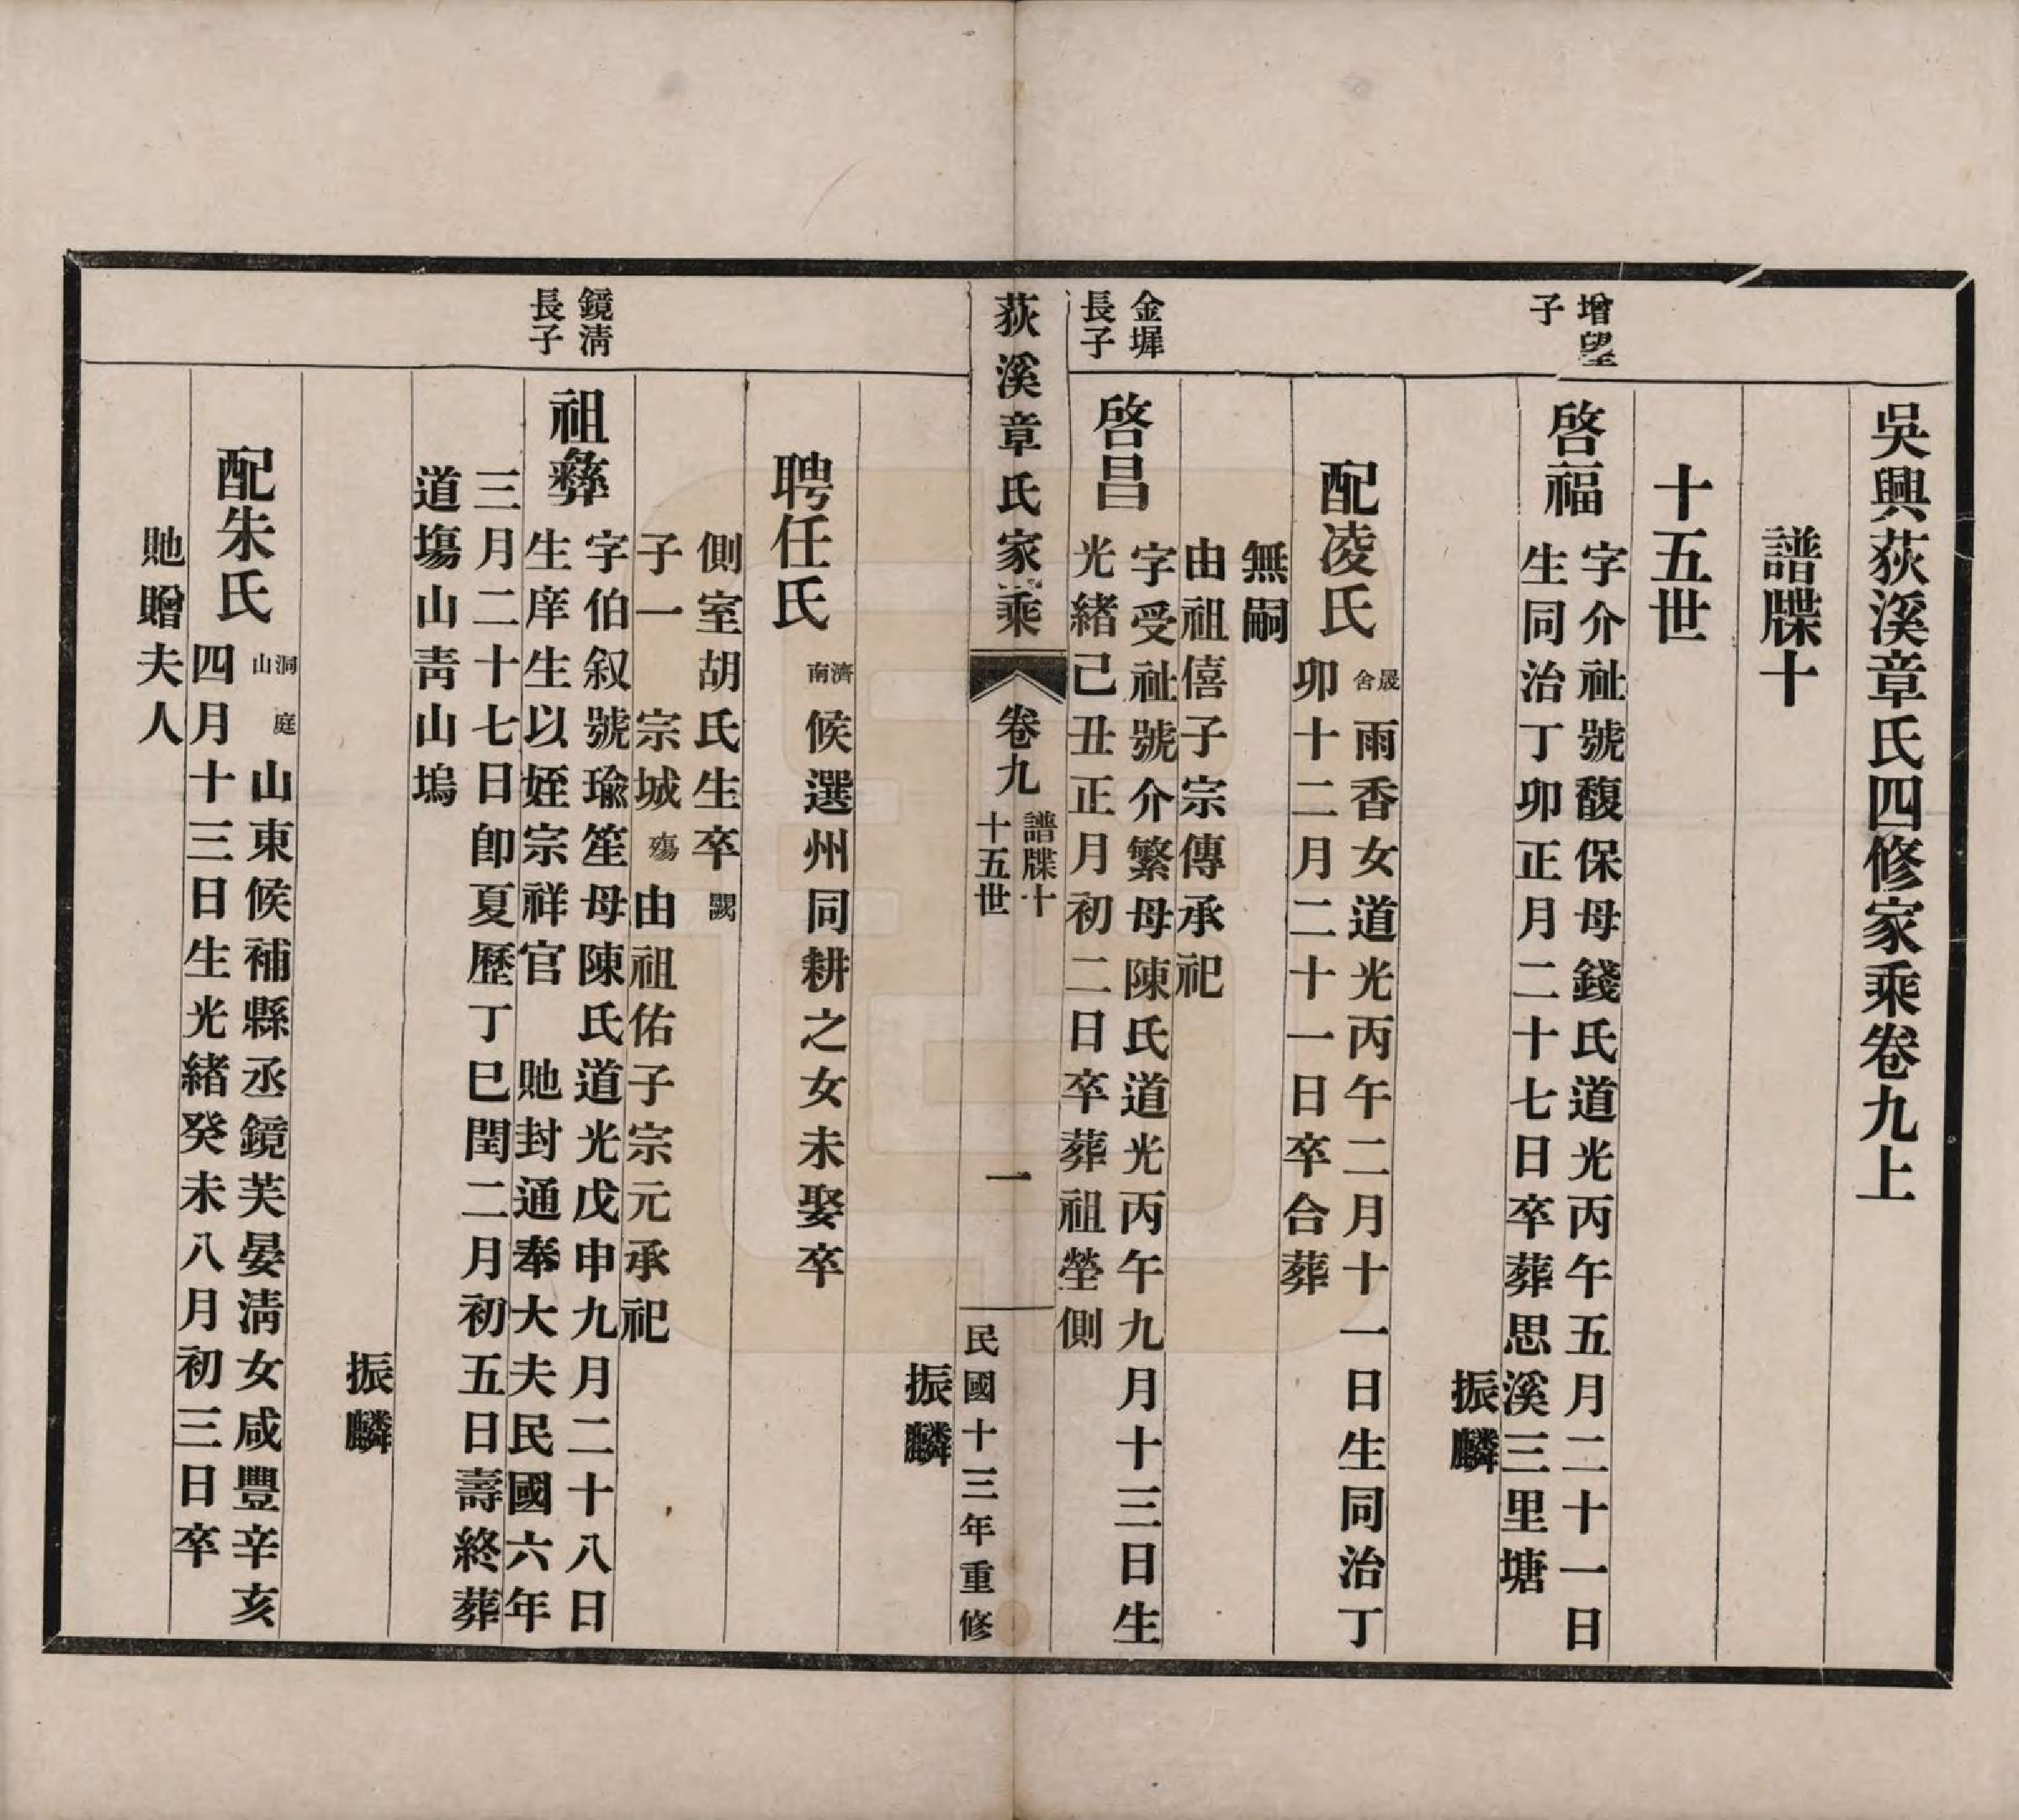 吳興荻溪章氏四修家乘卷九上
譜牒十
十五世
增望
子
啓福
字介祉號馥保母錢氏道光丙午五月二十一日
生同治丁卯正月二十七日卒葬思溪三里塘
振麟
配凌氏
晟舍
雨香女道光丙午二月十一日生同治丁
卯十二月二十一日卒合葬
無嗣
由祖僖子宗傳承祀
金墀
長子
啓昌
字受祉號介繁母陳氏道光丙午九月十三日生
光緒己丑正月初二日卒葬祖塋側
荻溪章氏家乘
卷九
譜牒十
十五世
一
民國十三年重修
振麟
聘任氏
濟南
候選州同耕之女未娶卒
側室胡氏生卒闕
子一 宗城殤 由祖佑子宗元承祀
鏡清
長子
祖彝
字伯叙號瑜笙母陳氏道光戊申九月二十八日
生庠生以姪宗祥官 貤封通奉大夫民國六年
三月二十七日卽夏歷丁巳閏二月初五日壽終葬
道塲山靑山塢
振麟
配朱氏
洞庭山
山東候補縣丞鏡芙晏清女咸豐辛亥
四月十三日生光緒癸未八月初三日卒
貤贈夫人